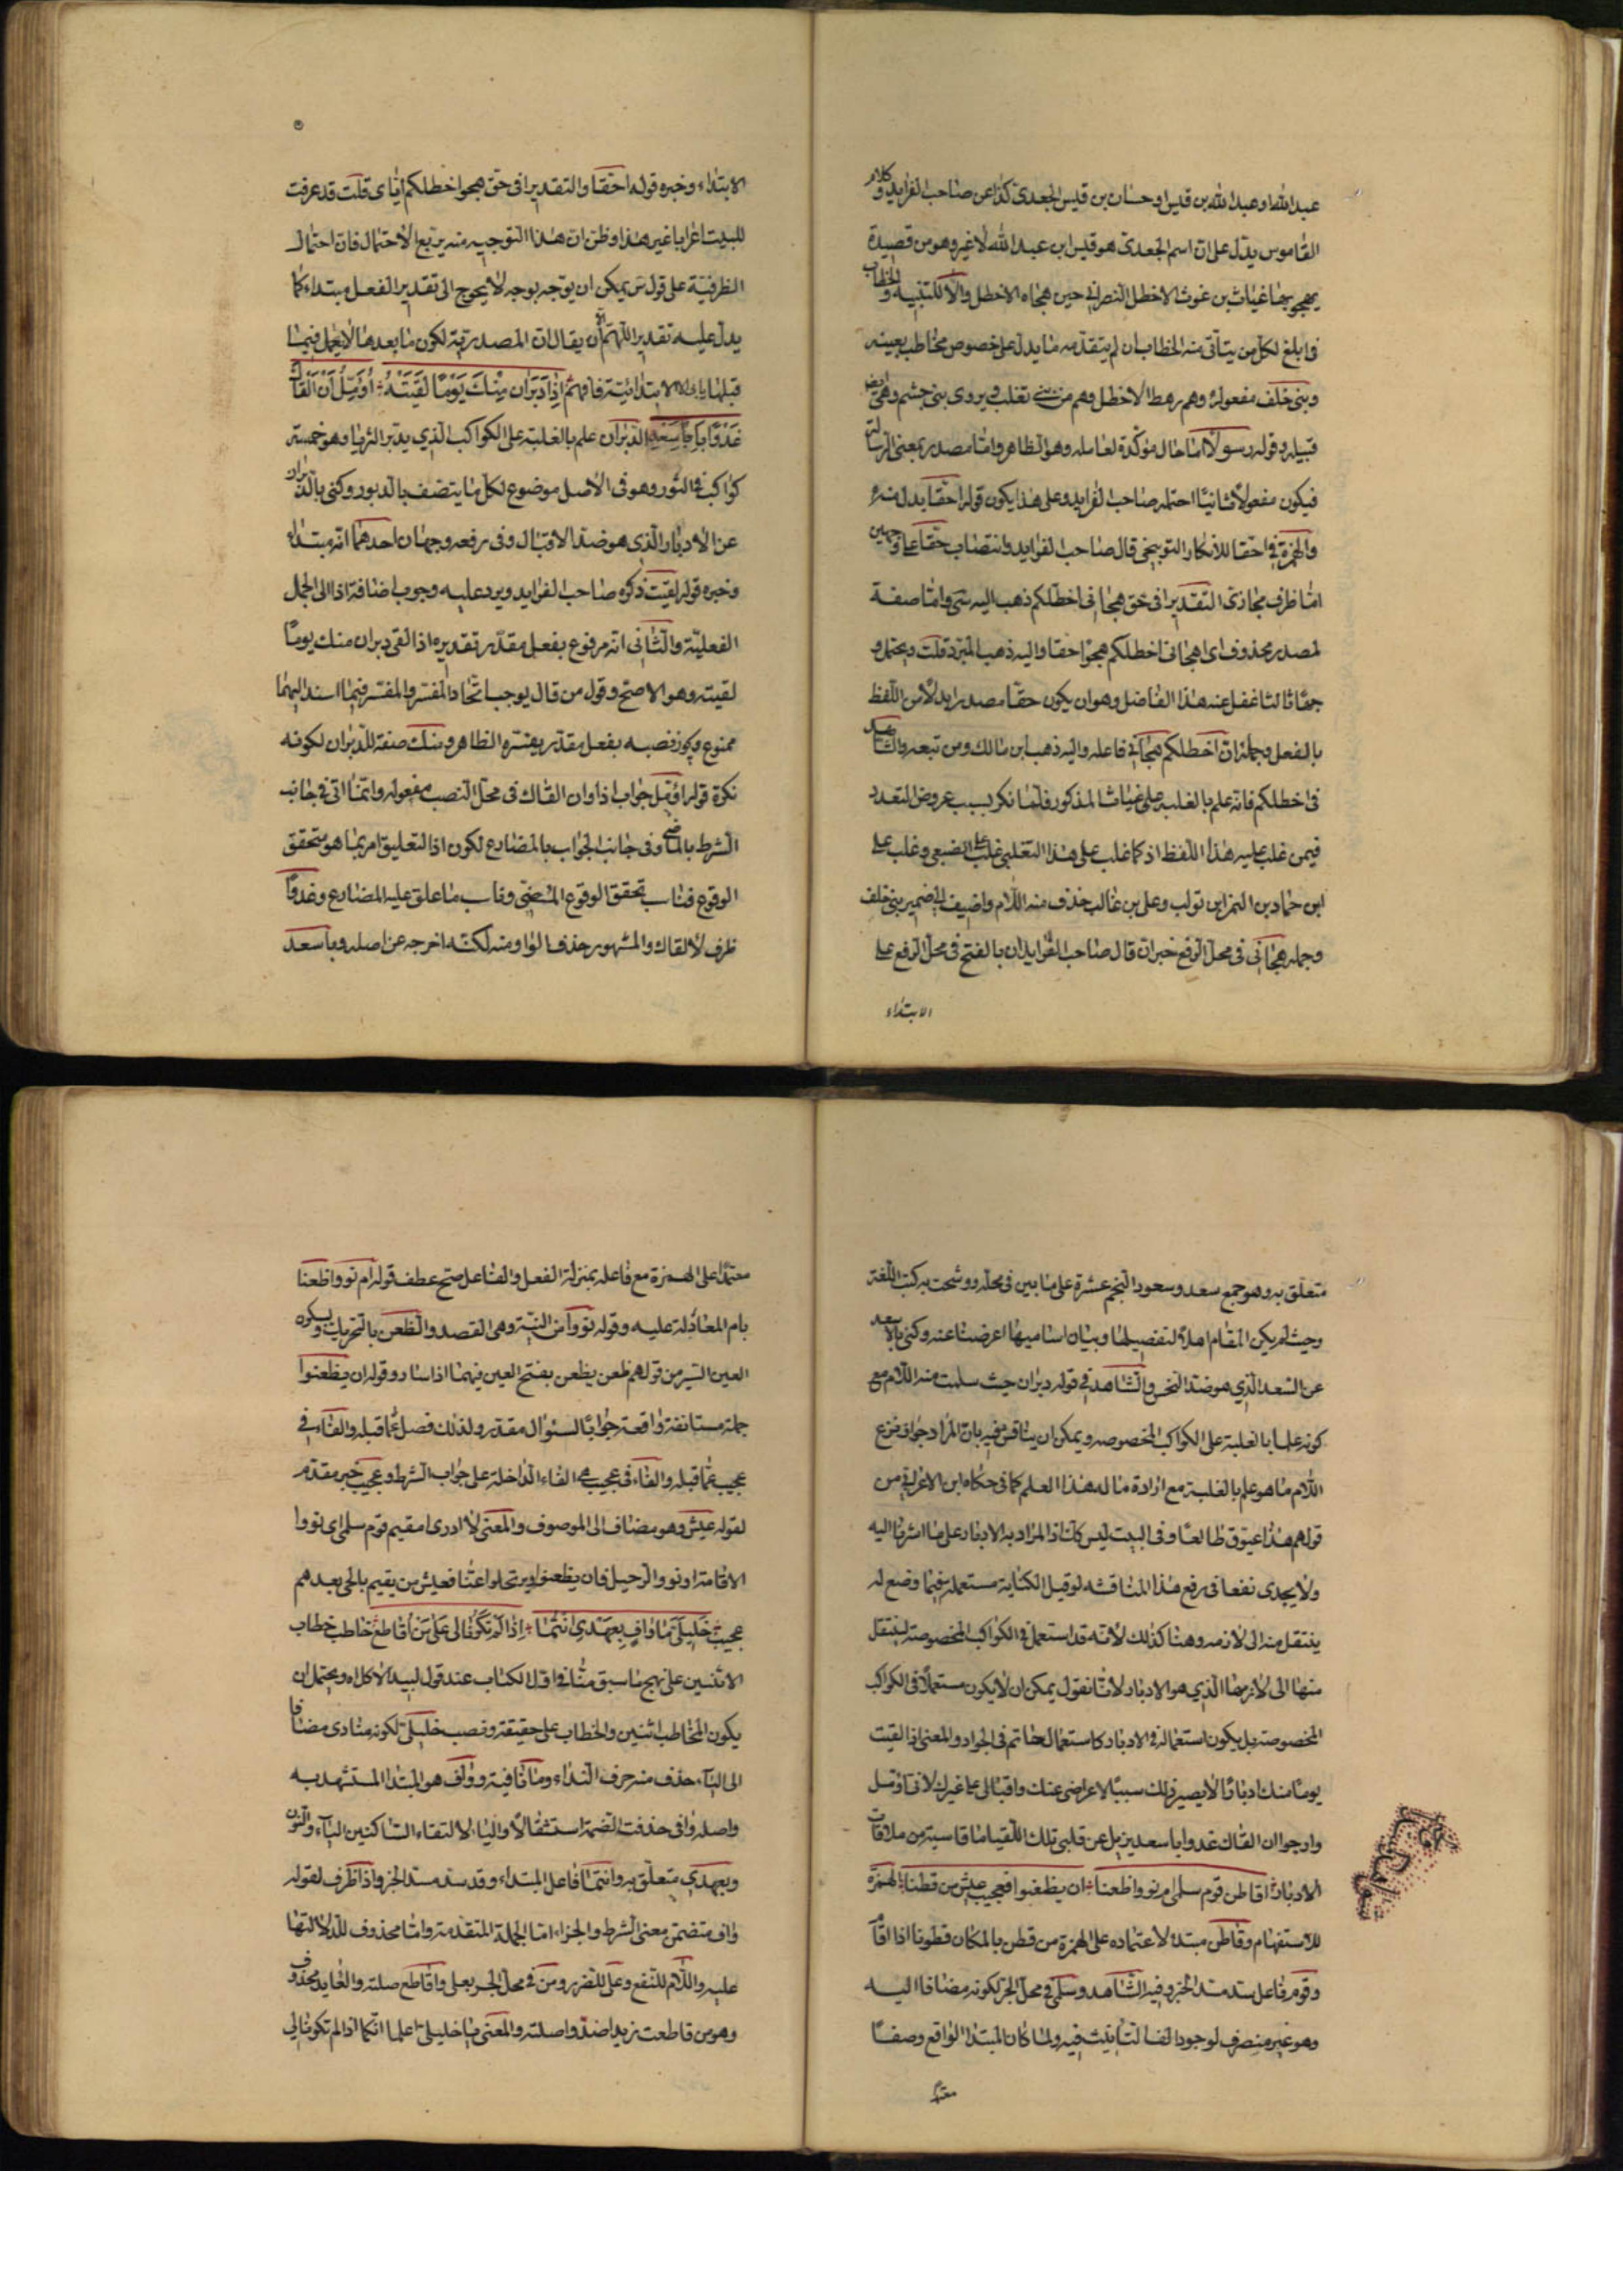 عبد الله او عبد الله بن قيس او حسان بن قيس الجعدى كذا عن صاحب الفرايد وكلام
القاموس يدل على ان اسم الجعدى هو قيس ابن عبد الله لا غير وهو من قصيدة
يهجو بها غياث بن غوث الاخطل النصرانى حين هجاه الاخطل والا للتنبيه والخطاب
فى ابلغ لكل من يتاتى منه الخطاب ان لم يتقدمه ما يدل على خصوص مخاطب بعينه
وبنى خلف مفعوله وهم رهط الاخطل وهم من بنى تغلب ويروى بنى جشم وهى ايضا
قبيله وقوله رسولا اما حال مؤكدة لعامله وهو الظاهر واما مصدر بمعنى الرسالة
فيكون مفعولا ثانيا احتمله صاحب الفرايد وعلى هذا يكون قوله احقا بدل منه
والهمزة فى احقا للانكار التوبيخى قال صاحب الفرايد وانتصاب حقا على وجهين
اما ظرف مجازى التقدير افى حق هجانى اخطلكم ذهب اليه س واما صفة
لمصدر محذوف اى اهجانى اخطلكم هجوا حقا واليه ذهب المبرد قلت ويحتمل و
جها ثالثا غفل عنه هذا الفاضل وهو ان يكون حقا مصدر ابدلا من اللفظ
بالفعل وجملة ان اخطلكم هجانى فاعله واليه ذهب ابن مالك ومن تبعه والشاهد
فى اخطلكم فانه علم بالغلبه على غياث المذكور فلما نكر بسبب عروض التعدد
فيمن غلب عليه هذا اللفظ اذ كما غلب على هذا التغلبى غلب على الضبعى وغلب على
ابن حماد بن النمر ابن تولب وعلى بن غالب حذف منه اللام واضيف الى ضمير بنى خلف
وجمله هجانى فى محل الرفع خبر ان قال صاحب الفرايد ان بالفتح فى محل الرفع على
الابتداء
الابتداء وخبره قوله احقا والتقدير افى حق هجوا خطلكم اياى قلت قد عرفت
للبيت اعرابا غير هذا وظن ان هذا التوجيه منه يتبع الاحتمال فان احتمال
الظرفية على قول س يمكن ان يوجه بوجه لا يحوج الى تقدير الفعل مبتداء كما
يدل عليه تقديره اللهم الا ان يقال ان المصدرية لكون ما بعدها لا يعمل فيما
قبلها الابتدائية فافهم اِذَا دَبَرَان مِنْكَ يَوْمًا لَقِيتُهُ اُؤَمِّلُ اَنْ اَلْقَاكَ
غَدْوًا بِاَسْعَدِ الدبران علم بالغلبة على الكواكب الذى يدبر الثريا وهو خمسة
كواكب فى الثور وهو فى الاصل موضوع لكل ما يتصف بالدبور وكنى بالدبران
عن الادبار الذى هو ضد الاقبال وفى رفعه وجهان احدهما انه مبتداء
وخبره قوله لقيت ذكره صاحب الفرايد ويرد عليه وجوب اضافة اذا الى الجمل
الفعلية والثانى انه مرفوع بفعل مقدر تقديره اذا لقى دبران منك يوما
لقيته وهو الاصح وقول من قال يوجب اتحاد المفسر والمفسر فيما اسند اليهما
ممنوع ويجوز نصبه بفعل مقدر يفسره الظاهر ومنك صفة للدبران لكونه
نكرة قوله اؤمل جواب اذا وان القاك فى محل النصب مفعوله وانما اتى فى جانب
الشرط بالماضى وفى جانب الجواب بالمضارع لكون اذا لتعليق امر بما هو متحقق
الوقوع فناسب تحقق الوقوع المضى وناسب ما علق عليه المضارع وغدوا
ظرف لالقاك والمشهور حذف الواو منه لكنه اخرجه عن اصله وباسعد
متعلق به وهو جمع سعد وسعود النجم عشرة على ما بين فى محله ووشحت به كتب اللغة
وحيث لم يكن المقام اهلا لتفصيلها وبيان اساميها اعرضنا عنه وكنى بالاسعد
عن السعد الذى هو ضد النحس والشاهد فى قوله دبران حيث سلبت منه اللام مع
كونه علما بالغلبة على الكواكب المخصوصه ويمكن ان يناقش فيه بان المراد جواز نزع
اللام مما هو علم بالغلبة مع ارادة ما له هذا العلم كما فى حكاه ابن الاعرابى من
قولهم هذا عيوق طالعا وفى البيت ليس كذا اذ المراد به الادبار على ما اشرنا اليه
ولا يجدى نفعا فى رفع هذا المناقشه لو قيل الكناية مستعملة فيما وضع له
ينتقل منه الى لازمه وهنا كذلك لانه قد استعمل فى الكواكب المخصوصة لينتقل
منها الى لازمها الذى هو الادبار لانا نقول يمكن ان لا يكون مستعملا فى الكواكب
المخصوصة بل يكون استعماله فى الادبار كاستعمال حاتم فى الجواد والمعنى اذا لقيت
يوما منك ادبارا لا يصير ذلك سببا لاعراضى عنك واقبالى على غيرك لانى اؤمل
وارجو ان القاك غدوا باسعد يزيل عن قلبى تلك اللقيا ما قاسية من ملاقات
الادبار اقاطن قوم سلمى ام نووا ظعنا ان يظعنوا فعجيب عيش من قطنا الهمزة
للاستفهام وقاطن مبتداء لاعتماده على الهمزة من قطن بالمكان قطونا اذا اقام
وقوم فاعل سد مسد الخبر وفيه الشاهد وسلمى فى محل الجر لكونه مضافا اليه
وهو غير منصرف لوجود الف التأنيث فيه ولما كان المبتدا الواقع وصفا
معتمدا
معتمدا على الهمزة مع فاعله بمنزلة الفعل والفاعل صح عطف قوله ام نووا ظعنا
بام المعادلة عليه وقوله نووا من النية وهى القصد والظعن بالتحريك وبسكون
العين السير من قولهم ظعن يظعن بفتح العين فيهما اذا سار وقوله ان يظعنوا
جملة مستانفة واقعة جوابا لسئوال مقدر ولذلك فصل عما قبله والفاء فى
عجيب عما قبله والفاء فى عجيب هى الفاء الداخلة على جواب الشرط وعجيب خبر مقدم
لقوله عيش وهو مضاف الى الموصوف والمعنى لا ادرى امقيم قوم سلمى اى نووا
الاقامة او نووا الرحيل فان يظعنوا ويرتحلوا عنا فعيش من يقيم بالحى بعدهم
عجيب خَلِيلَىَّ مَا وَافٍ بِعَهْدِى اَنْتُمَا اِذَا لَمْ تَكُونَا لِى عَلَى مَنْ اُقَاطِع خاطب خطاب
الاثنين على نهج ما سبق منا فى اول الكتاب عند قول لبيد الا كلاه ويحتمل ان
يكون المخاطب اثنين والخطاب على حقيقته ونصب خليلى لكونه منادى مضافا
الى الياء حذف منه حرف النداء وما نافية وواف هو المبتدا المستشهد به
واصله وافى حذفت الضمة استثقالا والياء لالتقاء الساكنين الياء والنون
وبعهدى متعلق به وانتما فاعل المبتداء وقد سد مسد الخبر واذا ظرف لقوله
واف متضمن معنى الشرط والجزاء اما الجملة المتقدمة واما محذوف للدلالتها
عليه واللام للنفع وعلى للضرر ومن فى محل الجر بعلى واقاطع صلته والعايد محذوف
وهو من قاطعت زيدا ضد واصلته والمعنى يا خليلى اعلما انكما اذا لم تكونا لى